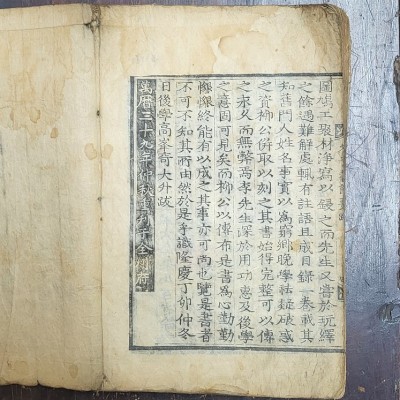 圖鳩工聚材淨寫以鋟之而先生又嘗於玩繹
之餘遇難解處輒有註語且成目錄一卷載其
知舊門人姓名事實以爲窮鄕晚學祛疑破惑
之資柳公倂取以刻之其書始得完整可以傳
之永久而無弊焉李先生深於用功惠及後學
之意因可見矣而柳公以傳布是書爲心勤勤
懇懇終能有以成之其事亦可尚也覽是書者
不可不知其所由然於是乎識隆慶丁卯仲冬
日後學高峯奇大升跋
萬曆三十九年仲秋重刊于全州府